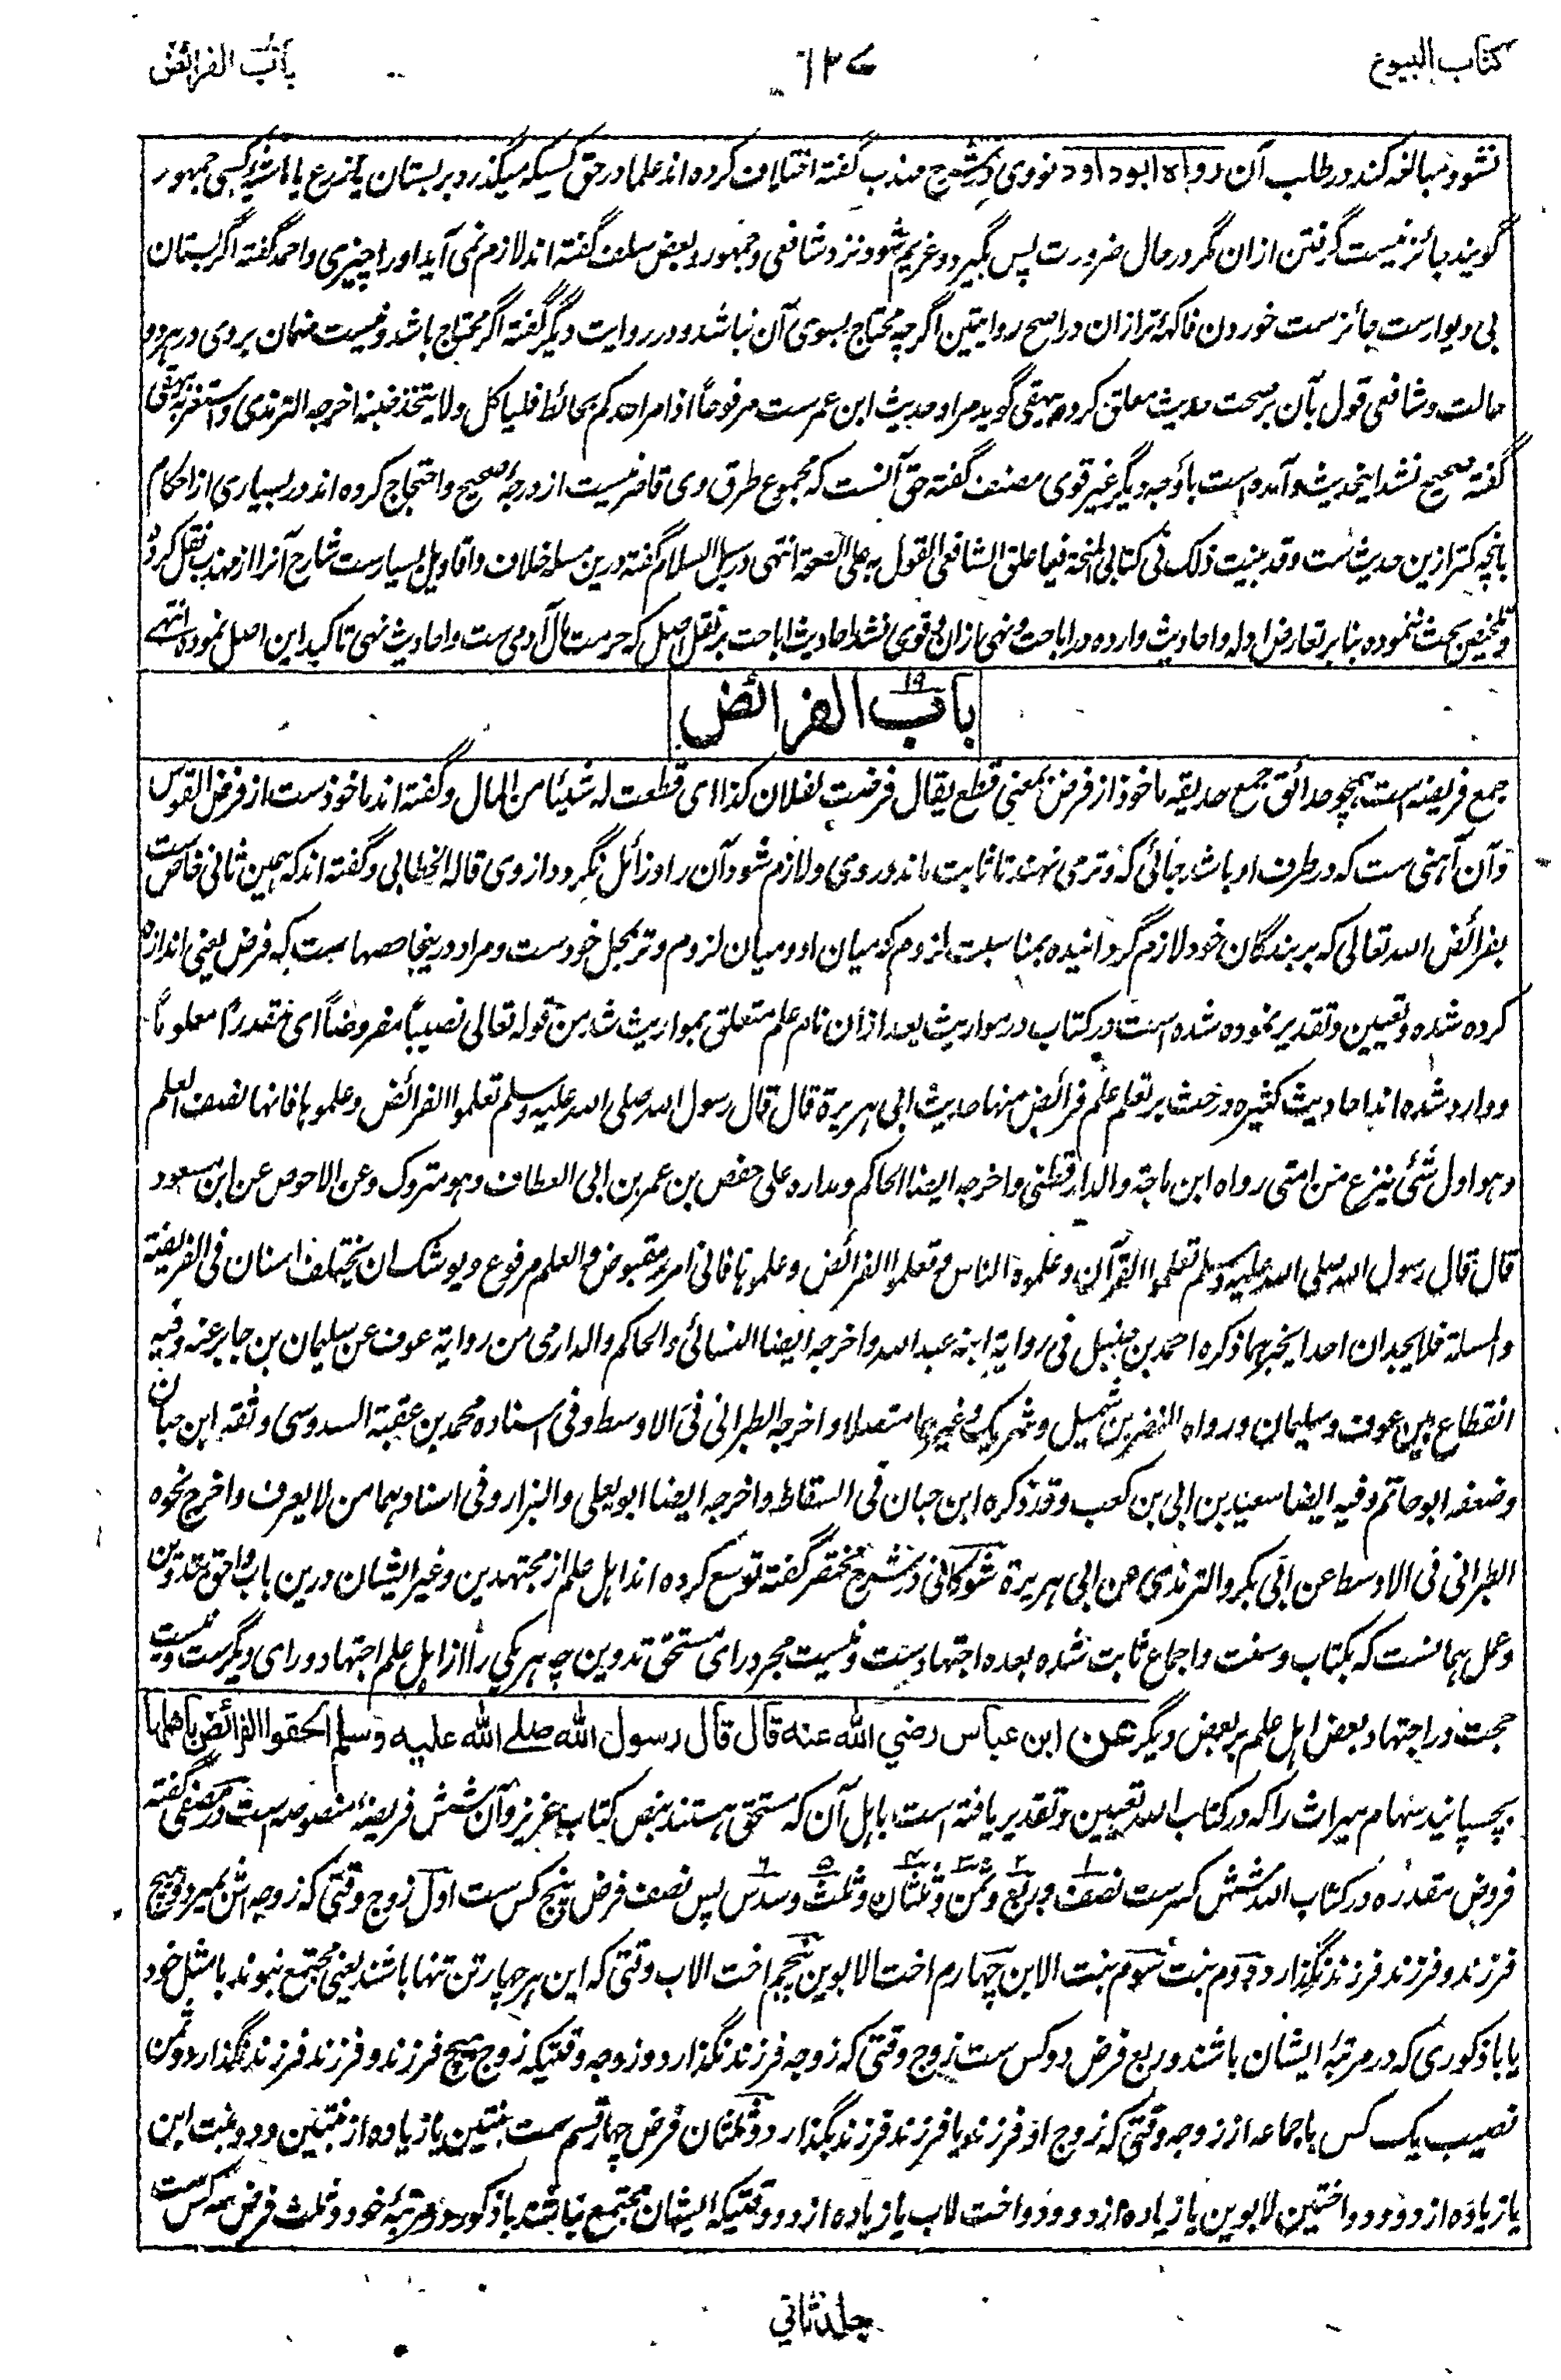 کتاب البیوع
۶۲۷
باب الفرائض
نشود و مبالغه کند در طلب آن رواه ابوداود نووی در شرح مهذب گفته اختلاف کرده اند علما در حق کسیکه میگذرد بر بستان یا زرع یا ماشیه کسی جمهور
گویند جائز نیست گرفتن ازان مگر در حال ضرورت پس بگیرد و غریم شود نزد شافعی و جمهور و بعض سلف گفته اند لازم نمی آید او را چیزی و احمد گفته اگر بستان
بی دیوارست جائز ست خوردن فاکهۀ تر ازان در اصح روایتین اگرچه محتاج بسوی آن نباشد و در روایت دیگر گفته اگر محتاج باشد و نیست ضمان بر وی در هر دو
حالت و شافعی قول بآن بر صحت حدیث معلق کرده بیهقی گوید مراد حدیث ابن عمرست مرفوعاً اذا مر احدکم بحائط فلیاکل ولا یتخذ خبنة اخرجه الترمذی واستغربه بیهقی
گفته صحیح نشد اینحدیث و آمده است باوجه دیگر غیر قوی مصنف گفته حق آنست که مجموع طرق وی قاصر نیست از درجۀ صحیح و احتجاج کرده اند در بسیاری از احکام
بانچه کمتر ازین حدیث ست و قد بینت ذلک فی کتابی المنحة فیما علق الشافعی القول به علی الصحة انتهی در سبل السلام گفته درین مسله خلاف و اقاویل بسیارست شارح آنرا از مهذب نقل کرده
و تلخیص بحث ننموده بنا بر تعارض ادله و احادیث وارده در اباحت و نهی ازان پس قوی نشد احادیث اباحت بر نقل اصل که حرمت مال آدمی ست و احادیث نهی تاکید این اصل نموده انتهے
باب الفرائض
۱۹
جمع فریضه است همچو حدائق جمع حدیقه ماخوذ از فرض بمعنی قطع یقال فرضت لفلان کذا ای قطعت له شیئا من المال و گفته اند ماخوذست از فرض القوس
و آن آهنی ست که در طرف او باشد جائی که وتر می نهند تا ثابت ماند در وی و لازم شود آن را و زائل نگردد از وی قاله الخطابی و گفته اند که همین ثانی خاص ست
بفرائض الله تعالی که بر بندگان خود لازم گردانیده بمناسبت لزوم که میان او و میان لزوم وتر بمحل خودست و مراد درینجا حصهاست که فرض یعنی اندازه
کرده شده و تعیین و تقدیر نموده شده است در کتاب در مواریث بعد ازان نام علم متعلق بمواریث شد من قوله تعالی نصیباً مفروضاً ای مقدرا معلوما
و وارد شده اند احادیث کثیره در حث بر تعلم علم فرائض منها حدیث ابی هریرة قال قال رسول الله صلی الله علیه وسلم تعلموا الفرائض وعلموها فانها نصف العلم
وهو اول شئی ینزع من امتی رواه ابن ماجة والدارقطنی واخرجه ایضا الحاکم ومداره علی حفص بن عمر بن ابی العطاف وهو متروک وعن الاحوص عن ابن مسعود
قال قال رسول الله صلی الله علیه وسلم تعلموا القرآن وعلموه الناس وتعلموا الفرائض وعلموها فانی امرء مقبوض والعلم مرفوع ویوشک ان یختلف اسنان فی الفریضة
والمسلة فلا یجدان احدا یخبرهما ذکره احمد بن حنبل فی روایة ابنه عبدالله واخرجه ایضا النسائی والحاکم والدارمی من روایة عوف عن سلیمان بن جابر عنه وفیه
انقطاع بین عوف وسلیمان ورواه النضر بن شمیل وشریک وغیرهما متصلا واخرجه الطبرانی فی الاوسط وفی اسناده محمد بن عقبة السدوسی وثقه ابن حبان
وضعفه ابوحاتم وفیه ایضا سعید بن ابی بن کعب وقد ذکره ابن حبان فی الثقات واخرجه ایضا ابویعلی والبزار وفی اسنادهما من لا یعرف واخرج نحوه
الطبرانی فی الاوسط عن ابی بکر والترمذی عن ابی هریرة شوکانی در شرح مختصر گفته توسع کرده اند اهل علم از مجتهدین و غیر ایشان درین باب و احق بتدوین
و عمل همانست که بکتاب و سنت و اجماع ثابت شده بعده اجتهادست و نیست مجرد رای مستحق تدوین چه هر یکی را از اهل علم اجتهاد و رای دیگرست و نیست
حجت در اجتهاد بعض اهل علم بر بعض دیگر عن ابن عباس رضي الله عنه قال قال رسول الله صلے الله علیه وسلم الحقوا الفرائض باهلها
بچسپانید سهام میراث را که در کتاب الله تعیین و تقدیر یافته است باهل آن که مستحق هستند بنص کتاب عزیز و آن شش فریضۀ منصوصه است در مصفی گفته
فروض مقدره در کتاب الله شش کسرست نصف و ربع و ثمن و ثلثان و ثلث و سدس پس نصف فرض پنج کس ست اول زوج وقتی که زوجه اش بمیرد و هیچ
فرزند و فرزند فرزند نگذارد دوم بنت سوم بنت الابن چهارم اخت الابوین پنجم اخت الاب وقتی که این هر چار تن تنها باشند یعنی مجتمع نبوند با مثل خود
یا با ذکوری که در مرتبۀ ایشان باشند و ربع فرض دو کس ست زوج وقتی که زوجه فرزند نگذارد و زوجه وقتیکه زوج هیچ فرزند و فرزند فرزند نگذارد و ثمن
نصیب یک کس یا جماعه از زوجه وقتی که زوج او فرزند یا فرزند فرزند بگذارد و ثلثان فرض چهار قسم ست بنتین یا زیاده از بنتین و دو بنت ابن
یا زیاده از دو و دو اختین لابوین یا زیاده از دو و دو اخت لاب یا زیاده از دو وقتیکه ایشان مجتمع نباشند با ذکور در مرتبۀ خود و ثلث فرض سه کس ست
جلد ثاني